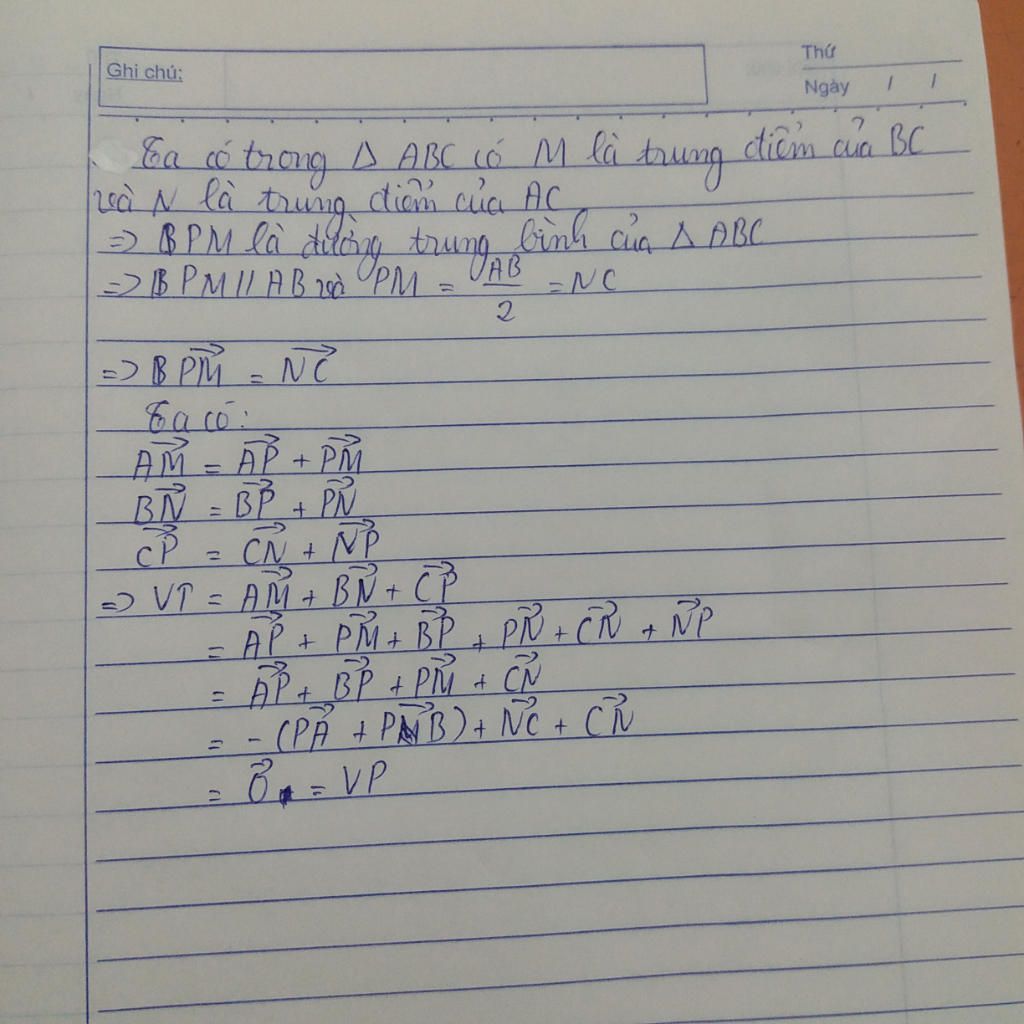 Ghi chú:
Thứ
Ngày / /
Ta có trong Δ ABC có M là trung điểm của BC
và N là trung điểm của AC
=> PM là đường trung bình của Δ ABC
=> PM // AB và PM = AB/2 = NC
=> PM⃗ = NC⃗
Ta có:
AM⃗ = AP⃗ + PM⃗
BN⃗ = BP⃗ + PN⃗
CP⃗ = CN⃗ + NP⃗
=> VT = AM⃗ + BN⃗ + CP⃗
= AP⃗ + PM⃗ + BP⃗ + PN⃗ + CN⃗ + NP⃗
= AP⃗ + BP⃗ + PM⃗ + CN⃗
= - (PA⃗ + PB⃗) + NC⃗ + CN⃗
= 0⃗ = VP